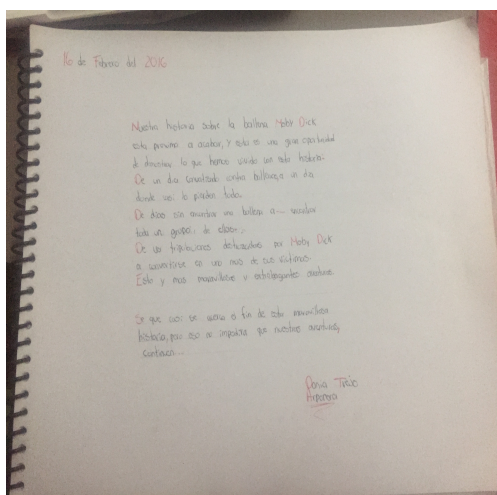 16 de Febrero del 2016
Nuestra historia sobre la ballena Moby Dick
esta proximo a acabar, y esta es una gran oportunidad
de demostrar lo que hemos vivido con esta historia.
De un dia comalizado contra ballenas, a un dia
donde casi lo pierden todo.
De dias sin encontrar una ballena a... encontrar
todo un grupo de ellas.
De una tripulacion por Moby Dick
a convertirse en una mas de sus victimas.
Esto y mas maravillosas y extravagantes aventuras
Se que casi se acerca el fin de esta maravillosa
historia, pero eso no impedira que nuestras aventuras,
continuen...
Dania Trejo
Arponera